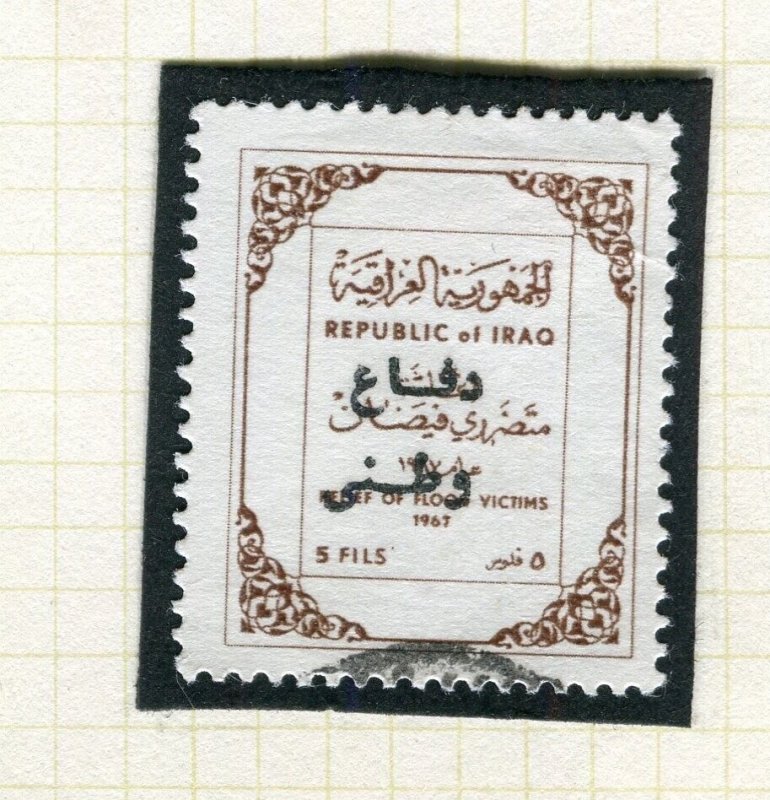 الجمهورية العراقية
REPUBLIC of IRAQ
دفاع
متضرري فيضان
عام ١٩٦٧
وطني
RELIEF OF FLOOD VICTIMS
1967
5 FILS
٥ فلوس